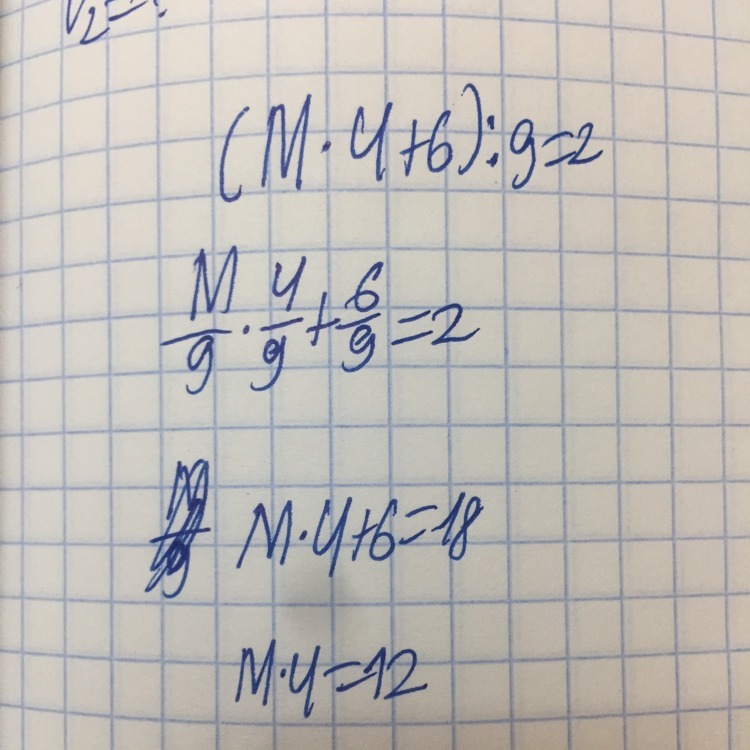 V₂=?
(M·4+6):9=2
M/9·4/9+6/9=2
M·4+6=18
M·4=12